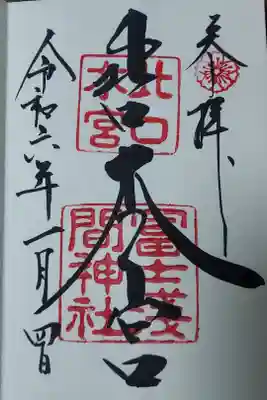 奉拝
北口本宮
北口
本宮
冨士淺
間神社
令和六年一月四日